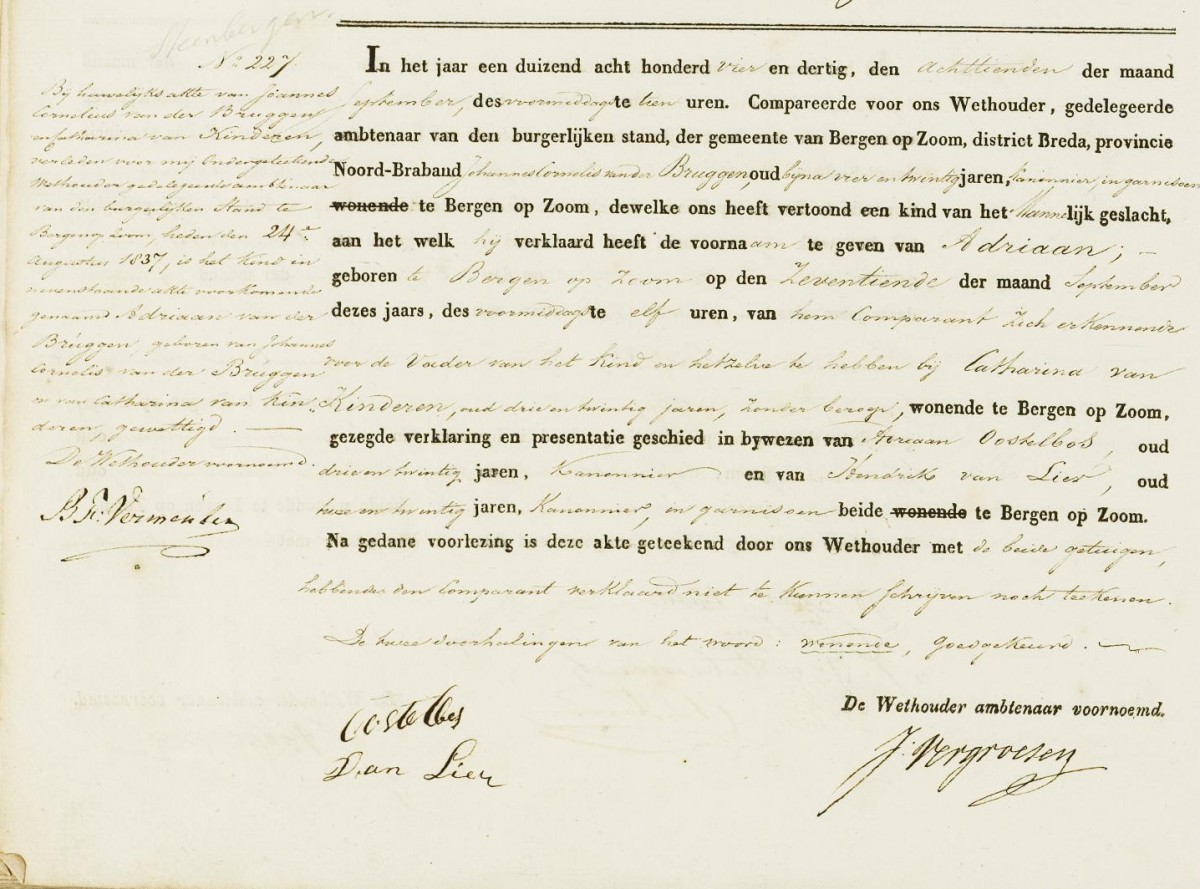 Steenbergen.
No 227.
Bij huwelijks akte van Joannes
Cornelius van der Bruggen
en Catharina van Kinderen,
verleden voor mij Ondergeteekende
Wethouder gedelegeerde ambtenaar
van den burgerlijken Stand te
Bergen op Zoom, heden den 24e
Augustus 1837, is het kind in
nevenstaande akte voorkomende
genaamd Adriaan van der
Bruggen, geboren van Johannes
Cornelis van der Bruggen
en van Catharina van Kin
deren, gewettigd. —
De Wethouder voornoemd.
B. F. Vermeulen
In het jaar een duizend acht honderd vier en dertig, den achttienden der maand
September, des voormiddags te tien uren. Compareerde voor ons Wethouder, gedelegeerde
ambtenaar van den burgerlijken stand, der gemeente van Bergen op Zoom, district Breda, provincie
Noord-Braband Johannes Cornelis van der Bruggen, oud bijna vier en twintig jaren, Kanonnier, in garnisoen
wonende te Bergen op Zoom, dewelke ons heeft vertoond een kind van het Mannelijk geslacht,
aan het welk hij verklaard heeft de voornaam te geven van Adriaan; —
geboren te Bergen op Zoom op den Zeventiende der maand September
dezes jaars, des voormiddags te elf uren, van hem Comparant zich erkennende
voor de Vader van het kind en hetzelve te hebben bij Catharina van
Kinderen, oud drie en twintig jaren, zonder beroep, wonende te Bergen op Zoom,
gezegde verklaring en presentatie geschied in bywezen van Adriaan Oostelbos, oud
drie en twintig jaren, Kanonnier en van Hendrik van Lier, oud
twee en twintig jaren, Kanonnier, in garnisoen beide wonende te Bergen op Zoom.
Na gedane voorlezing is deze akte geteekend door ons Wethouder met de beide getuigen,
hebbende den Comparant verklaard niet te kunnen schrijven noch teekenen.
De twee doorhalingen van het woord: wonende, goedgekeurd. —
Oostelbos
De Wethouder ambtenaar voornoemd.
van Lier
J. Vergroesen